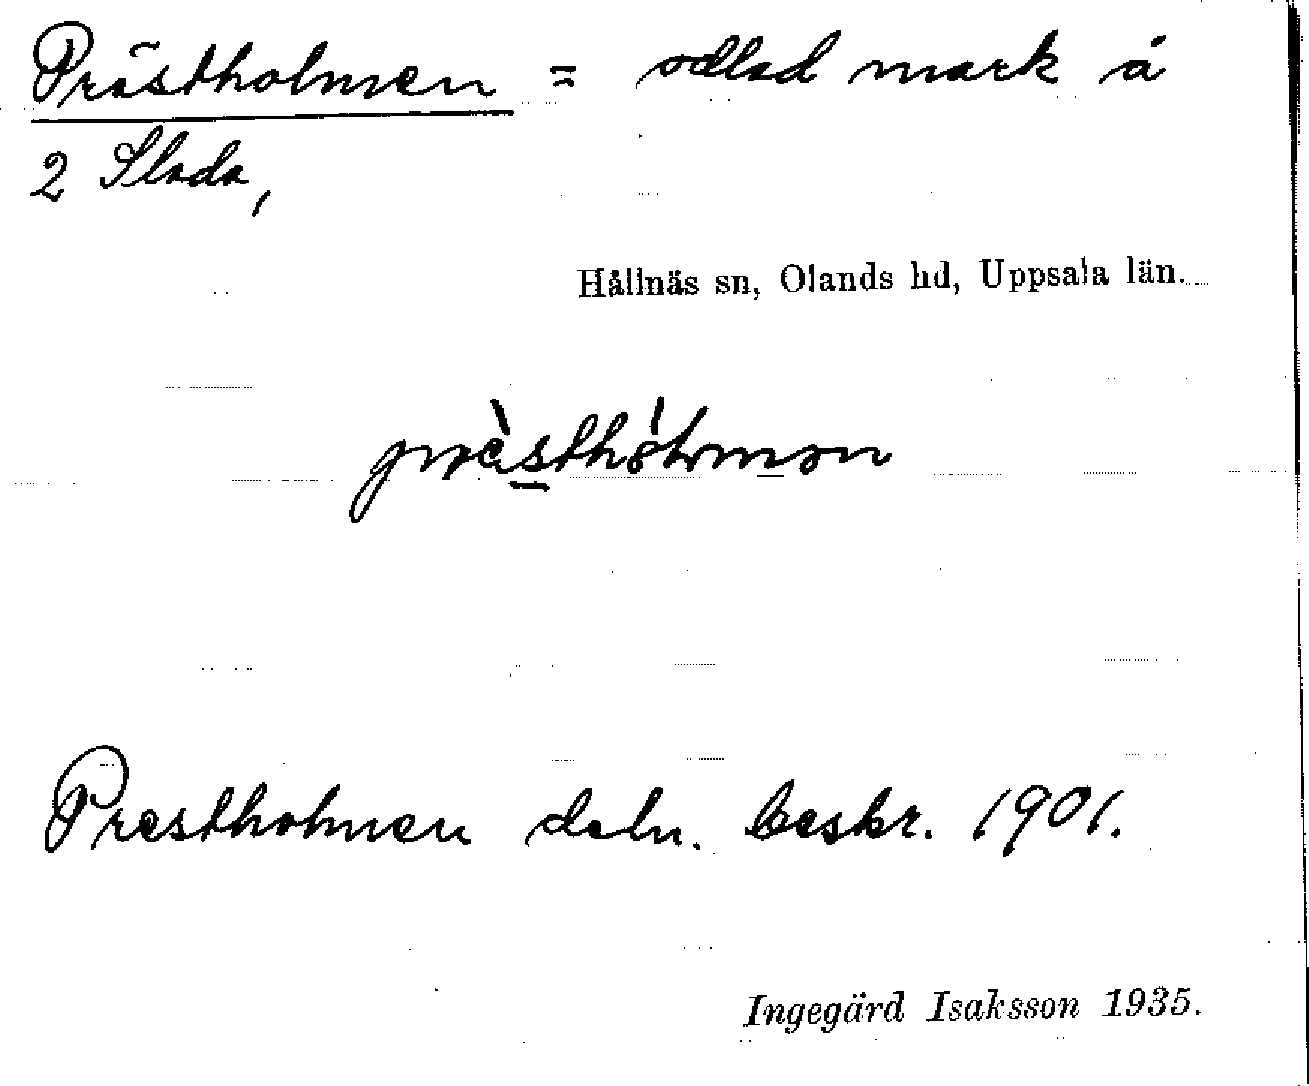 Prästholmen = odlad mark å
2 Slada,
Hållnäs sn, Olands hd, Uppsala län.
Prestholmen deln. beskr. 1901.
Ingegärd Isaksson 1935.